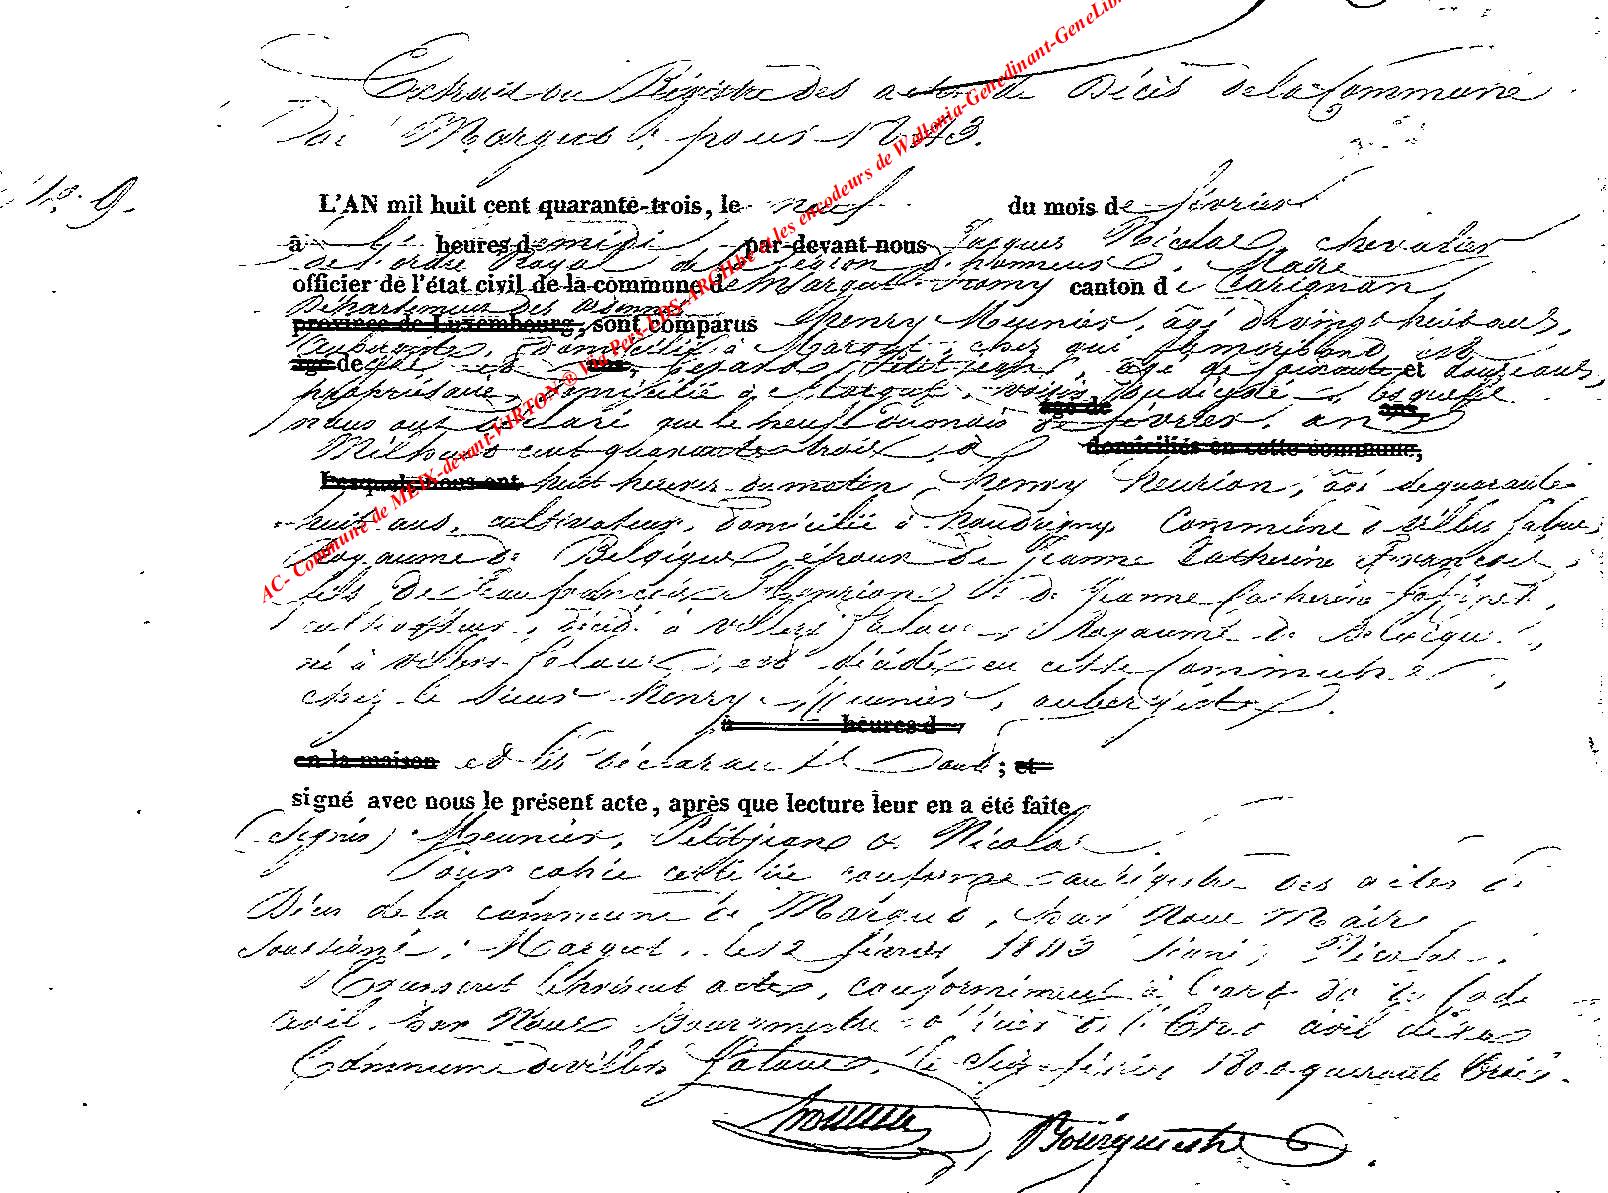 Extrait du Régistre des actes de Décès de la Commune
De Margut, pour 1843.
N.º 9.
L'AN mil huit cent quarante-trois, le neuf du mois de février
à heures de midi, par-devant nous Jacques Nicolas, chevalier
de l'ordre Royal de la légion d'honneur, Maire
officier de l'état civil de la commune de Margut, canton de Carignan,
Département des Ardennes
province de Luxembourg, sont comparus Henry Meunier, âgé de vingt huit ans,
Aubergiste, domicilié à Margut, chez qui
âgé de ans, Petitjean, âgé de et douze ans,
propriétaire, domicilié à Margut, voisin lesquels
âgé de ans,
nous ont déclaré que le neuf du mois de février, an
Mil huit cent quarante trois, à domiciliés en cette commune,
Lesquels nous ont huit heures du matin, Henry Henrion, âgé de quarante
huit ans, cultivateur, domicilié à Houdrigny, Commune de Villers la loue
Royaume de Belgique, époux de Jeanne Catherine François,
fils de Jean françois Henrion et de Jeanne Catherine
cultivateur, décédé à Villers la loue, Royaume de Belgique,
né à Villers la loue, est décédé en cette Commune
chez le Sieur Henry Meunier, aubergiste.
à heures d
en la maison et les déclarants ont ; et
signé avec nous le présent acte, après que lecture leur en a été faite
(Signés) Meunier, Petitjean & Nicolas.
Pour copie certifiée conforme au régistre des actes de
Décès de la commune de Margut, par Nous Maire
Soussigné. Margut, le 12 février 1843 signé, Nicolas.
Transcrit le présent acte, conformément à l'art 80 du Code
Civil, par Nous Bourgmestre officier de l'Etat civil de la
Commune de Villers la loue, le Seize février 1800 quarante trois.
Bourgmestre
AC- Commune de MEIX-devant-VIRTON ® Via Pers-EDS-ARCH.be et les encodeurs de Wallonia-Genedinant-GeneLib